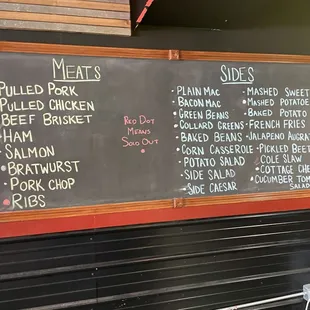 MEATS
PULLED PORK
PULLED CHICKEN
BEEF BRISKET
HAM
SALMON
BRATWURST
PORK CHOP
RIBS
RED DOT
MEANS
SOLD OUT
SIDES
PLAIN MAC
BACON MAC
GREEN BEANS
COLLARD GREENS
BAKED BEANS
CORN CASSEROLE
POTATO SALAD
SIDE SALAD
SIDE CAESAR
MASHED SWEET
MASHED POTATOE
BAKED POTATO
FRENCH FRIES
JALAPENO AUGRAT
PICKLED BEE
COLE SLAW
COTTAGE CHE
CUCUMBER TOM
SALAD